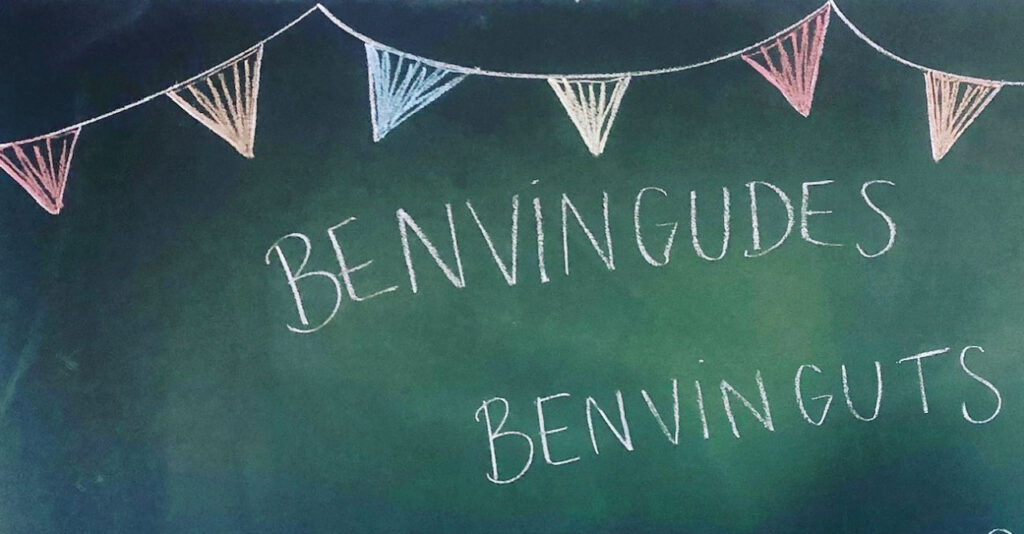 BENVINGUDES
BENVINGUTS